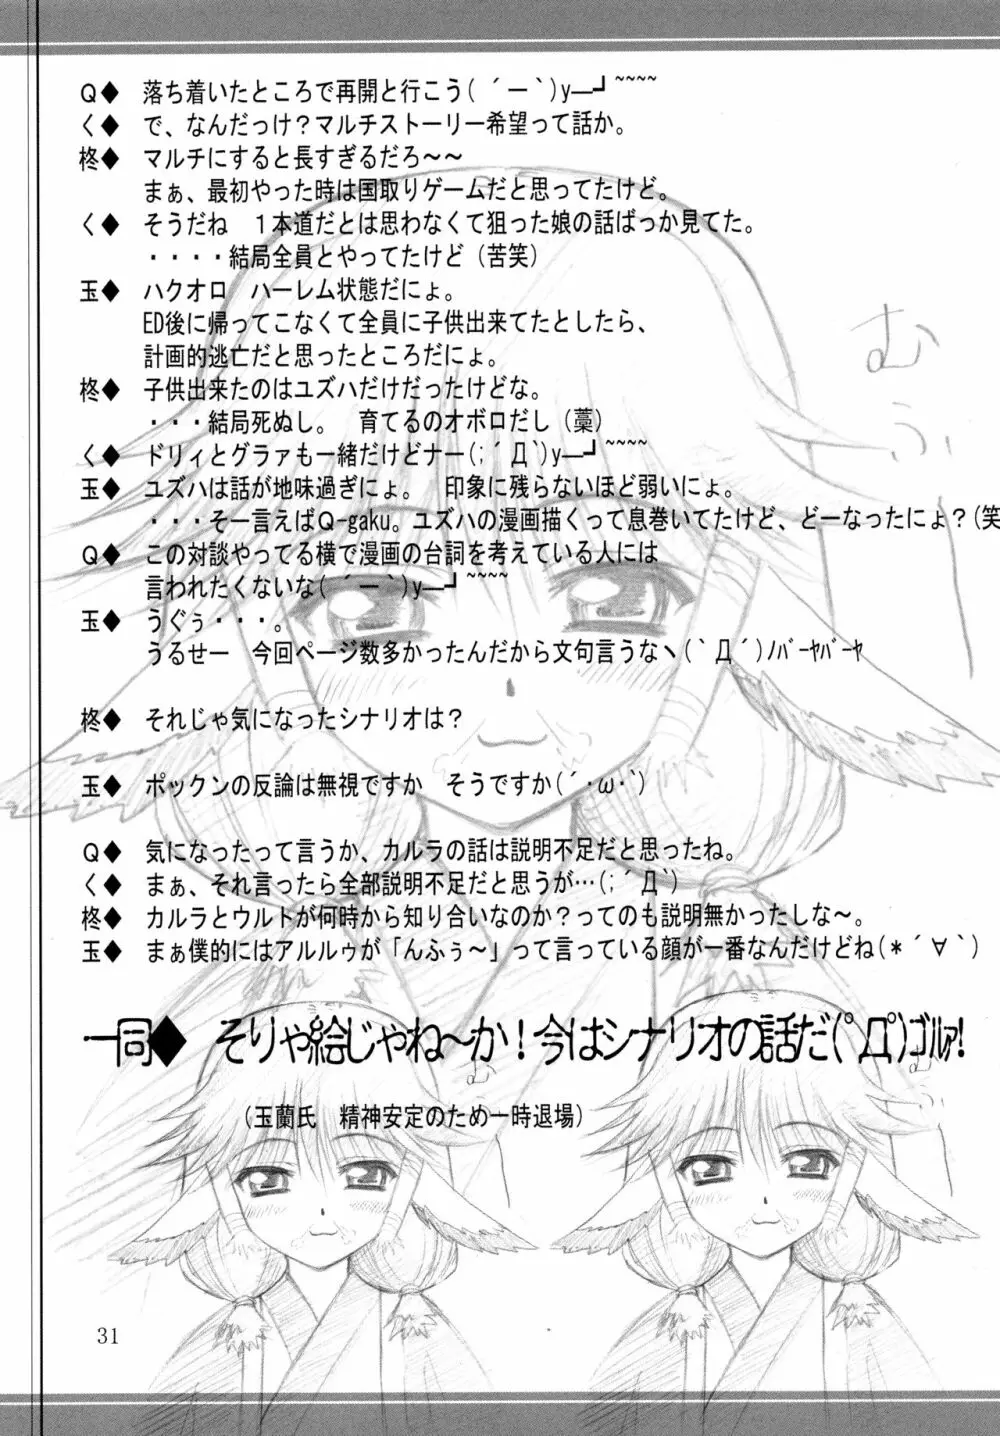 Q◆ 落ち着いたところで再開と行こう( ´ー`)y─┛~~~~
く◆ で、なんだっけ？マルチストーリー希望って話か。
柊◆ マルチにすると長すぎるだろ～～
まぁ、最初やった時は国取りゲームだと思ってたけど。
く◆ そうだね　１本道だとは思わなくて狙った娘の話ばっか見てた。
・・・・結局全員とやってたけど（苦笑）
玉◆ ハクオロ　ハーレム状態だにょ。
ED後に帰ってこなくて全員に子供出来てたとしたら、
計画的逃亡だと思ったところだにょ。
柊◆ 子供出来たのはユズハだけだったけどな。
・・・結局死ぬし。　育てるのオボロだし（藁）
く◆ ドリィとグラァも一緒だけどナー(;´Д`)y─┛~~~~
玉◆ ユズハは話が地味過ぎにょ。　印象に残らないほど弱いにょ。
・・・そー言えばQ-gaku。ユズハの漫画描くって息巻いてたけど、どーなったにょ？(笑
Q◆ この対談やってる横で漫画の台詞を考えている人には
言われたくないな( ´ー`)y─┛~~~~
玉◆ うぐぅ・・・。
うるせー　今回ページ数多かったんだから文句言うなヽ(`Д´)ﾉﾊﾞｰﾔﾊﾞｰﾔ
柊◆ それじゃ気になったシナリオは？
玉◆ ポックンの反論は無視ですか　そうですか(´･ω･`)
Q◆ 気になったって言うか、カルラの話は説明不足だと思ったね。
く◆ まぁ、それ言ったら全部説明不足だと思うが…(;´Д`)
柊◆ カルラとウルトが何時から知り合いなのか？ってのも説明無かったしな～。
玉◆ まぁ僕的にはアルルゥが「んふぅ～」って言っている顔が一番なんだけどね(＊´∀`)
一同◆ そりゃ絵じゃね～か！今はシナリオの話だ(ﾟДﾟ)ｺﾞﾙｧ!
（玉蘭氏　精神安定のため一時退場）
むふー
むふー
むふー
31